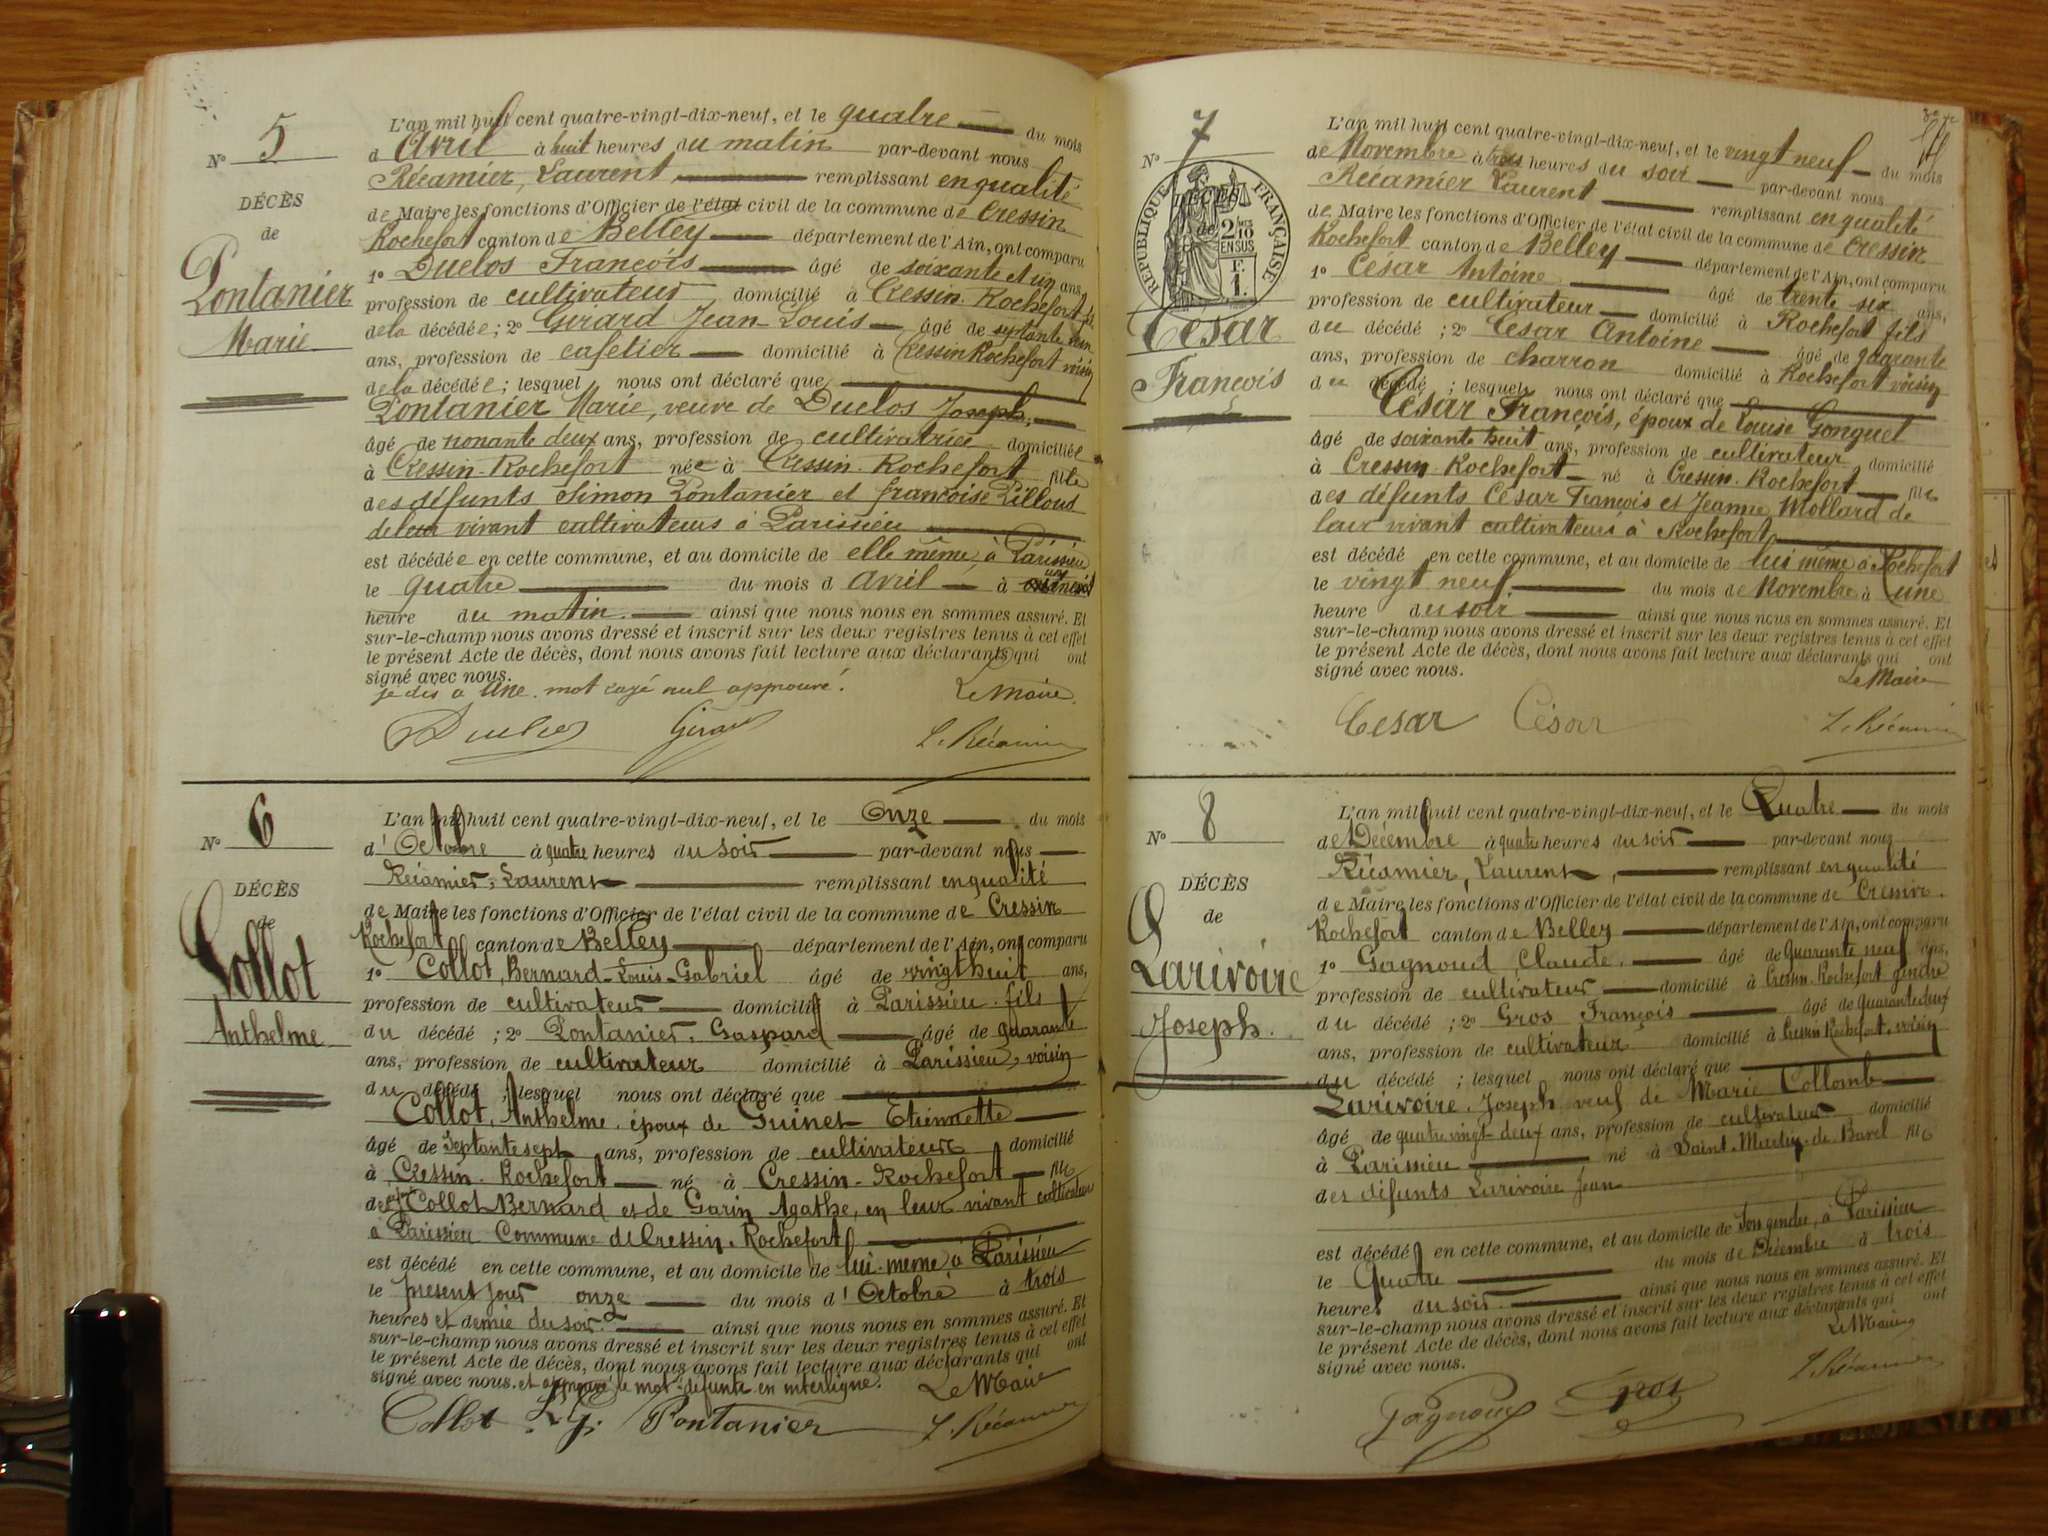 N° 5
DÉCÈS
de
Pontanier
Marie
L'an mil huit cent quatre-vingt-dix-neuf, et le quatre du mois
d'Avril à huit heures du matin par-devant nous
Récamier, Laurent, remplissant en qualité
de Maire les fonctions d'Officier de l'état civil de la commune de Cressin
Rochefort canton de Belley département de l'Ain, ont comparu
1° Duclos François âgé de soixante et un ans,
profession de cultivateur domicilié à Cressin-Rochefort fils
de la décédée; 2° Girard Jean-Louis âgé de septante un
ans, profession de cafetier domicilié à Cressin Rochefort voisin
de la décédée; lesquels nous ont déclaré que
Pontanier Marie, veuve de Duclos Joseph,
âgé de nonante deux ans, profession de cultivatrice domiciliée
à Cressin-Rochefort née à Cressin-Rochefort fille
des défunts Simon Pontanier et françoise Pilloud
de leur vivant cultivateurs à Parissieu
est décédée en cette commune, et au domicile de elle même, à Parissieu
le quatre du mois d'avril à une
heure du matin. ainsi que nous nous en sommes assuré. Et
sur-le-champ nous avons dressé et inscrit sur les deux registres tenus à cet effet
le présent Acte de décès, dont nous avons fait lecture aux déclarants qui ont
signé avec nous.
je dis à une. mot rayé nul approuvé. Le Maire
Duclos Girard L. Récamier
N° 6
DÉCÈS
de
Collot
Anthelme
L'an mil huit cent quatre-vingt-dix-neuf, et le Onze du mois
d'Octobre à quatre heures du soir par-devant nous
Récamier, Laurent remplissant en qualité
de Maire les fonctions d'Officier de l'état civil de la commune de Cressin
Rochefort canton de Belley département de l'Ain, ont comparu
1° Collot, Bernard-Louis-Gabriel âgé de vingt huit ans,
profession de cultivateur domicilié à Parissieu fils
du décédé; 2° Pontanier, Gaspard âgé de quarante
ans, profession de cultivateur domicilié à Parissieu, voisin
du décédé; lesquels nous ont déclaré que
Collot, Anthelme, époux de Guinet Etiennette
âgé de septante sept ans, profession de cultivateur domicilié
à Cressin-Rochefort né à Cressin-Rochefort fils
de Collot Bernard et de Garin Agathe, en leur vivant cultivateurs
à Parissieu Commune de Cressin-Rochefort
est décédé en cette commune, et au domicile de lui-même à Parissieu
le présent jour onze du mois d'Octobre à trois
heures et demie du soir. ainsi que nous nous en sommes assuré. Et
sur-le-champ nous avons dressé et inscrit sur les deux registres tenus à cet effet
le présent Acte de décès, dont nous avons fait lecture aux déclarants qui ont
signé avec nous. et approuvé le mot: défunts en interligne. Le Maire
Collot L. G. Pontanier L. Récamier
N° 7
RÉPUBLIQUE FRANÇAISE
2/10 EN SUS
F. 1.
César
François
L'an mil huit cent quatre-vingt-dix-neuf, et le vingt neuf du mois
de Novembre à trois heures du soir par-devant nous
Récamier Laurent remplissant en qualité
de Maire les fonctions d'Officier de l'état civil de la commune de Cressin
Rochefort canton de Belley département de l'Ain, ont comparu
1° César Antoine âgé de trente six ans,
profession de cultivateur domicilié à Rochefort fils
du décédé; 2° César Antoine âgé de quarante
ans, profession de charron domicilié à Rochefort voisin
du décédé; lesquels nous ont déclaré que
César François, époux de Louise Gonguet
âgé de soixante huit ans, profession de cultivateur domicilié
à Cressin-Rochefort né à Cressin-Rochefort fils
des défunts César François et Jeanne Mollard de
leur vivant cultivateurs à Rochefort
est décédé en cette commune, et au domicile de lui même à Rochefort
le vingt neuf du mois de Novembre à une
heure du soir ainsi que nous nous en sommes assuré. Et
sur-le-champ nous avons dressé et inscrit sur les deux registres tenus à cet effet
le présent Acte de décès, dont nous avons fait lecture aux déclarants qui ont
signé avec nous. Le Maire
Cesar César L. Récamier
N° 8
DÉCÈS
de
Larivoire
Joseph.
L'an mil huit cent quatre-vingt-dix-neuf, et le Quatre du mois
de Décembre à quatre heures du soir par-devant nous
Récamier, Laurent, remplissant en qualité
de Maire les fonctions d'Officier de l'état civil de la commune de Cressin.
Rochefort canton de Belley département de l'Ain, ont comparu
1° Gagnoud, Claude, âgé de Quarante neuf ans,
profession de cultivateur domicilié à Cressin-Rochefort gendre
du décédé; 2° Gros François âgé de Quarante deux
ans, profession de cultivateur domicilié à Cressin Rochefort, voisin
du décédé; lesquels nous ont déclaré que
Larivoire, Joseph veuf de Marie Collomb
âgé de quatre vingt-deux ans, profession de cultivateur domicilié
à Parissieu né à Saint-Martin-de-Bavel fils
des défunts Larivoire Jean
est décédé en cette commune, et au domicile de son gendre, à Parissieu
le Quatre du mois de Décembre à trois
heures du soir. ainsi que nous nous en sommes assuré. Et
sur-le-champ nous avons dressé et inscrit sur les deux registres tenus à cet effet
le présent Acte de décès, dont nous avons fait lecture aux déclarants qui ont
signé avec nous. Le Maire
Gagnoud Gros L. Récamier